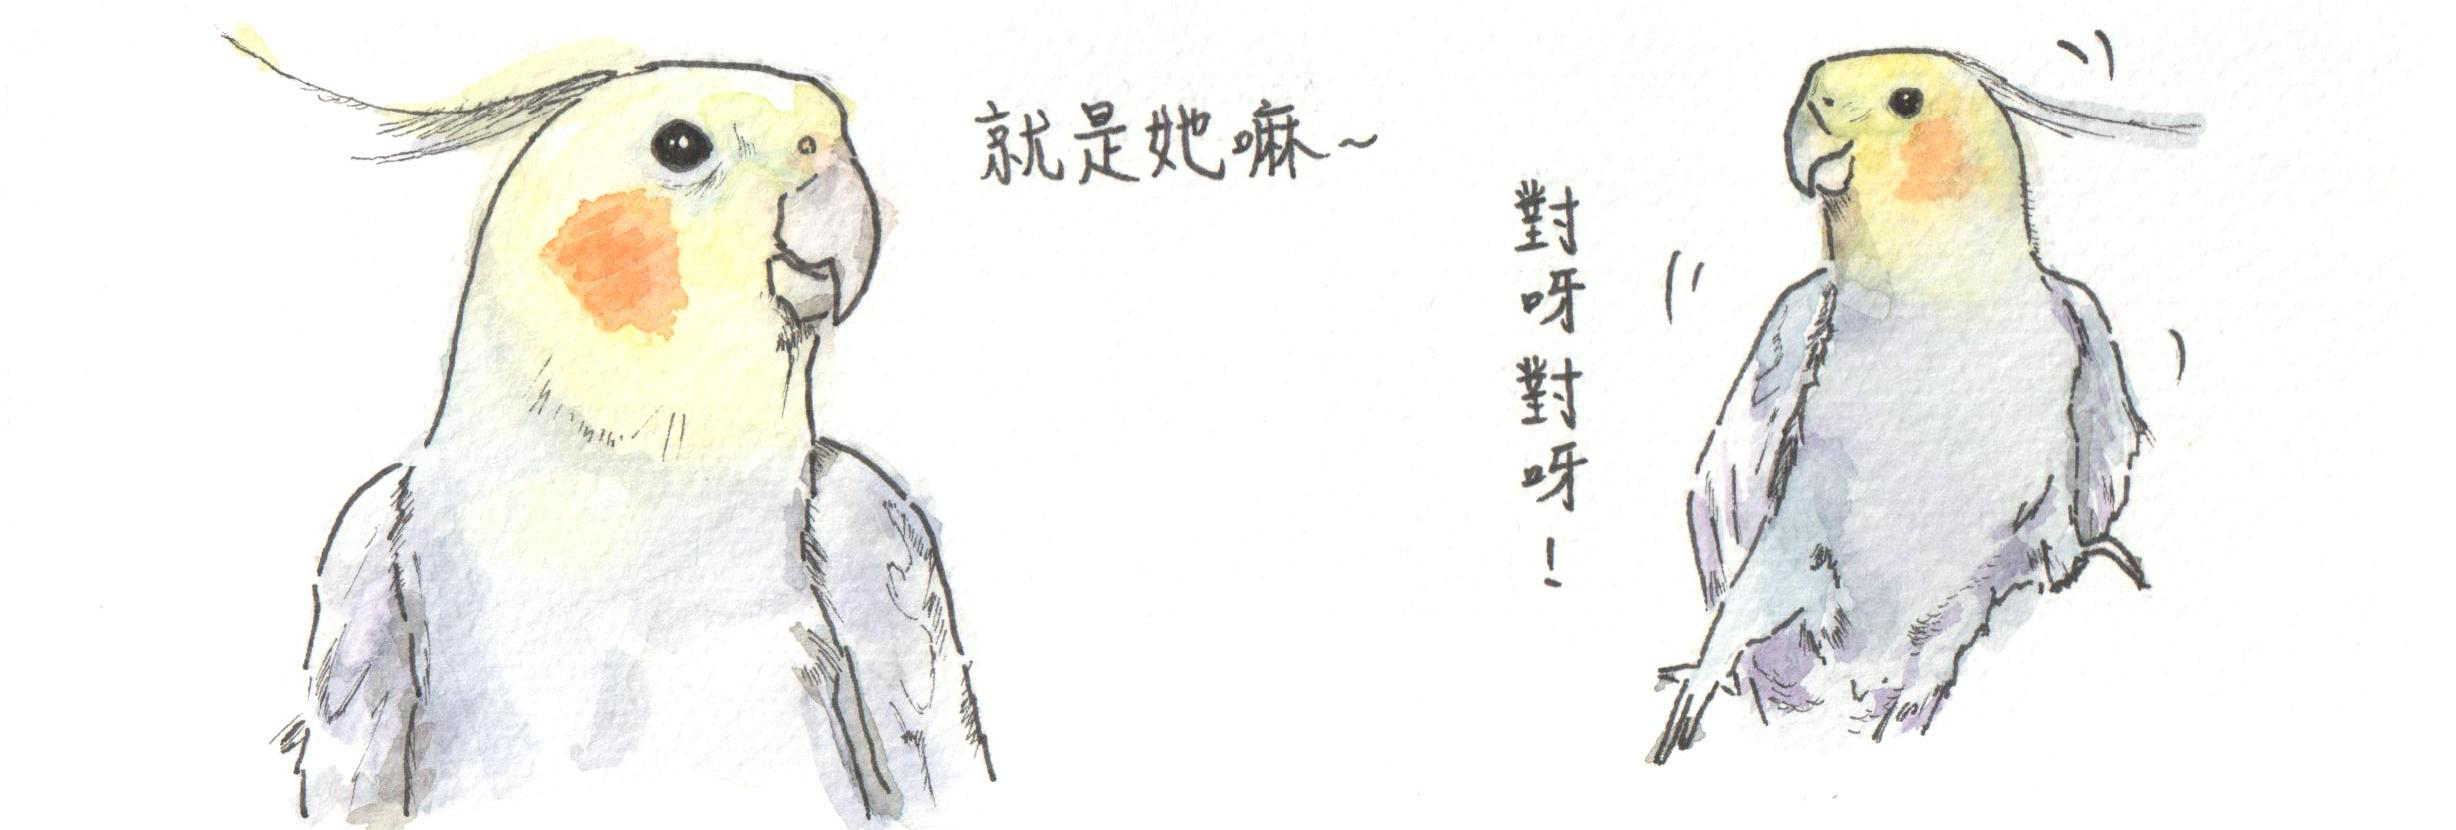 就是她嘛~
對呀對呀!